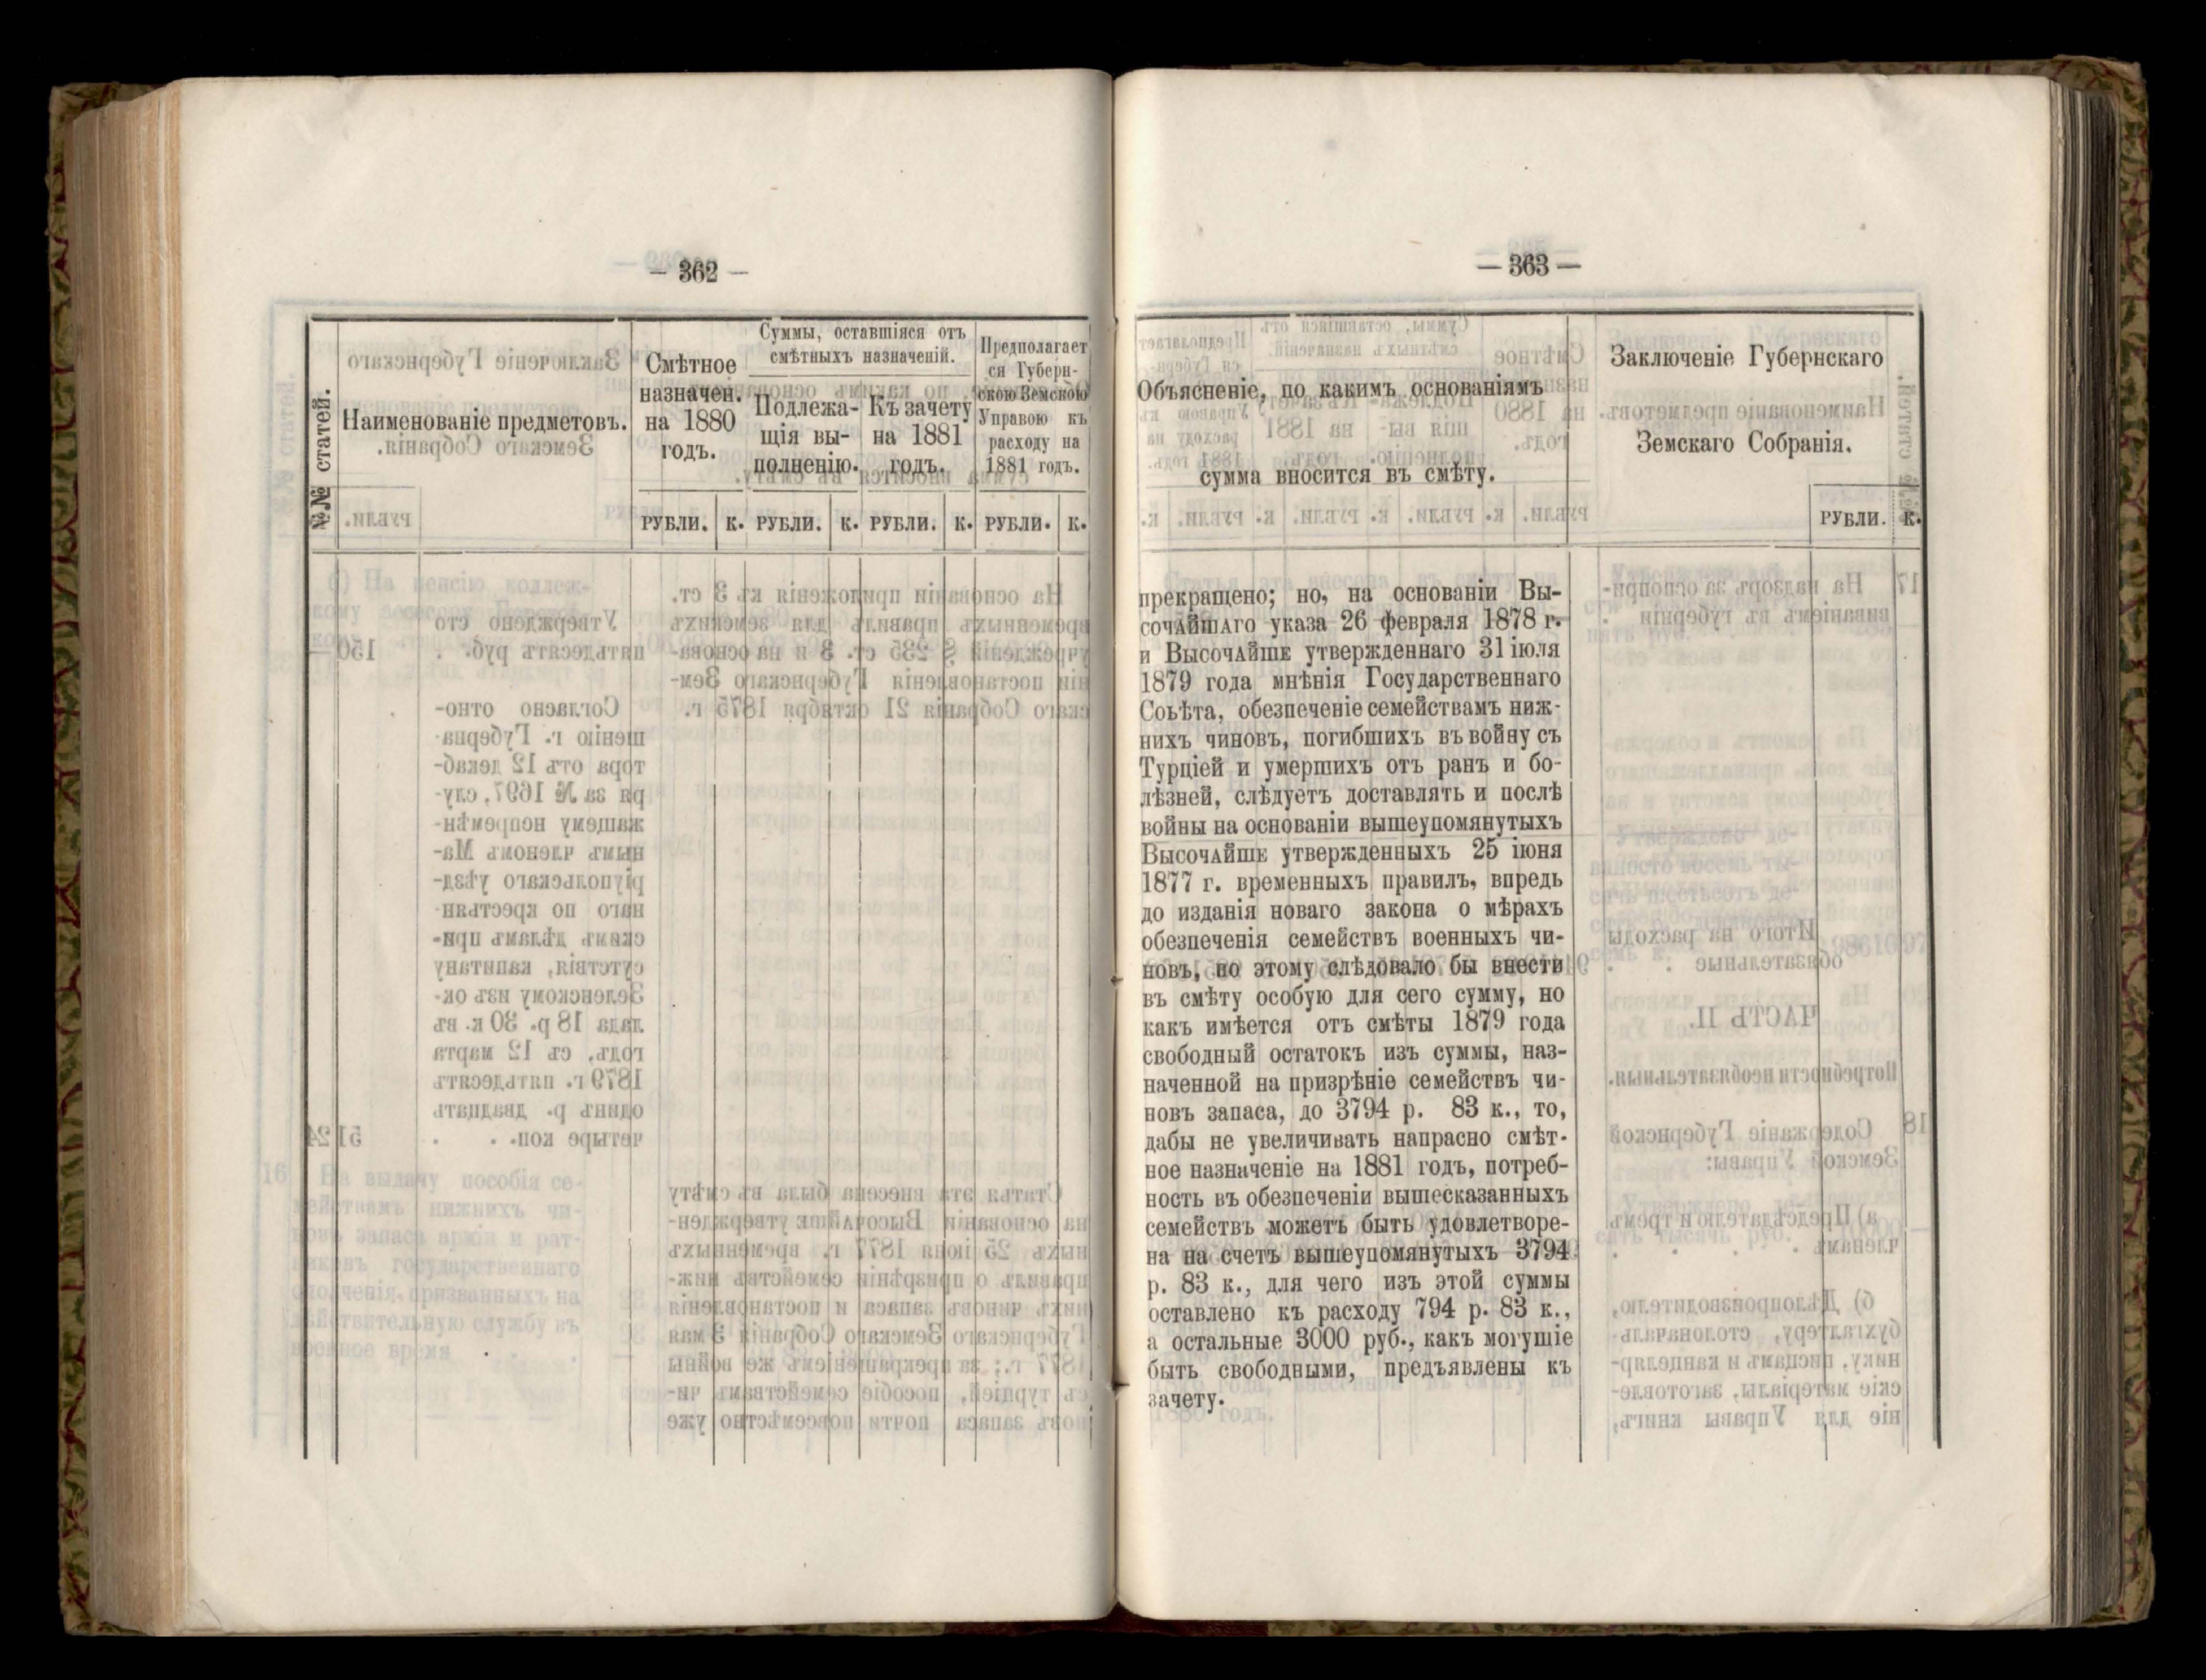 — 362 —
№№ статей.
Наименованіе предметовъ.
Смѣтное
назначен.
на 1880
годъ.
Суммы, оставшіяся отъ
смѣтныхъ назначеній.
Подлежа-
щія вы-
полненію.
Къ зачету
на 1881
годъ.
Предполагает
ся Губерн-
скою Земскою
Управою къ
расходу на
1881 годъ.
РУБЛИ. К. РУБЛИ. К. РУБЛИ. К. РУБЛИ. К.
— 363 —
Объясненіе, по какимъ основаніямъ
сумма вносится въ смѣту.
Заключеніе Губернскаго
Земскаго Собранія.
РУБЛИ. К.
прекращено; но, на основаніи Вы-
сочАйшАго указа 26 февраля 1878 г.
и ВысочАйшЕ утвержденнаго 31 іюля
1879 года мнѣнія Государственнаго
Соьѣта, обезпеченіе семействамъ ниж-
нихъ чиновъ, погибшихъ въ войну съ
Турціей и умершихъ отъ ранъ и бо-
лѣзней, слѣдуетъ доставлять и послѣ
войны на основаніи вышеупомянутыхъ
ВысочАйшЕ утвержденныхъ 25 іюня
1877 г. временныхъ правилъ, впредь
до изданія новаго закона о мѣрахъ
обезпеченія семействъ военныхъ чи-
новъ, по этому слѣдовало бы внести
въ смѣту особую для сего сумму, но
какъ имѣется отъ смѣты 1879 года
свободный остатокъ изъ суммы, наз-
наченной на призрѣніе семействъ чи-
новъ запаса, до 3794 р. 83 к., то,
дабы не увеличивать напрасно смѣт-
ное назначеніе на 1881 годъ, потреб-
ность въ обезпеченіи вышесказанныхъ
семействъ можетъ быть удовлетворе-
на на счетъ вышеупомянутыхъ 3794
р. 83 к., для чего изъ этой суммы
оставлено къ расходу 794 р. 83 к.,
а остальные 3000 руб., какъ могушіе
быть свободными, предъявлены къ
зачету.